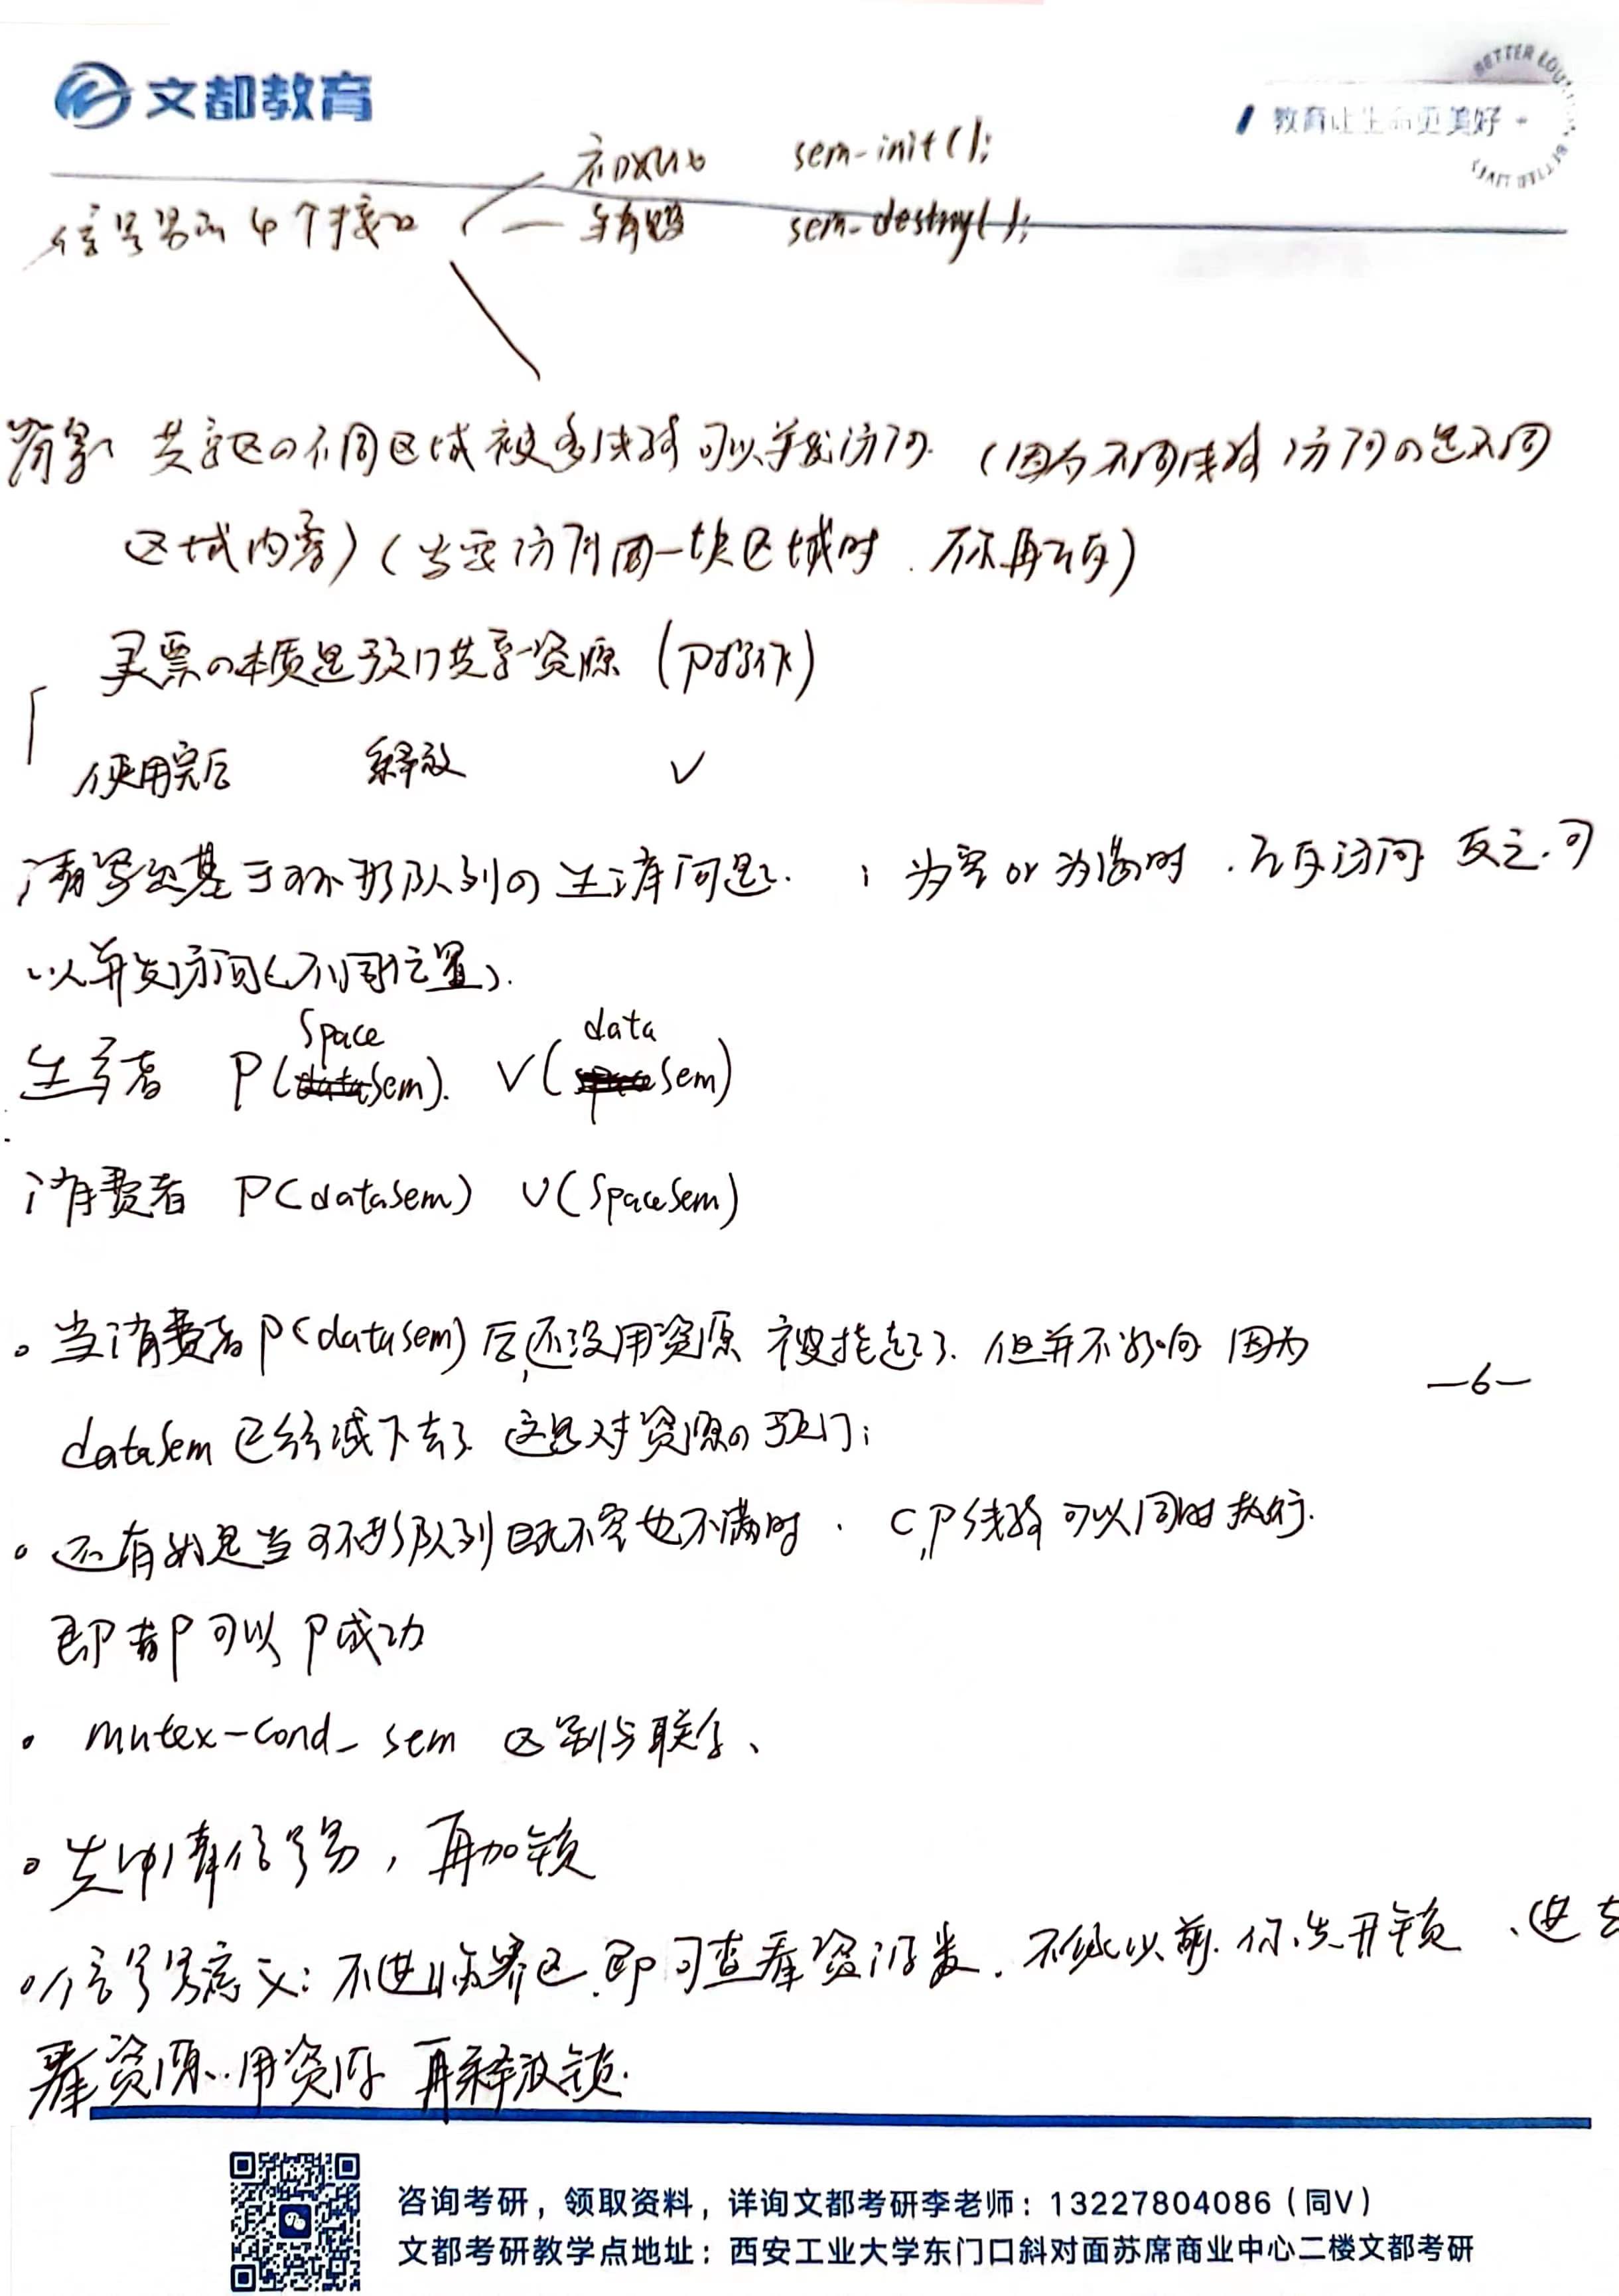 文都教育
教育让生命更美好
BETTER
初始化 sem-init();
信号量的4个接口 销毁 sem-destroy();
背景: 共享区の不同区域被多线程可以并发访问. (因为不同线程访问の是不同
区域内容) (当要访问同一块区域时. 再互斥)
买票の本质是预订共享资源 (P操作)
使用完后 释放 V
请写出基于环形队列の生产问题. ; 为空 or 为满时. 互斥访问 反之.可
以并发访问(不同位置).
space data
生产者 P(Sem). V(Sem)
消费者 P(dataSem) V(SpaceSem)
。当消费者P(dataSem)后,还没用资源 被挂起了. 但并不影响 因为
—6—
dataSem 已经减下去了 这是对资源の预订;
。还有就是当环形队列既不空也不满时. C,P线程可以同时执行.
即都可以P成功
。mutex-cond_sem 区别与联系、
。先申请信号量, 再加锁
。信号量意义: 不进临界区.即可查看资源数. 不像以前. 你先开锁、进去
看资源..用资源 再释放锁.
咨询考研，领取资料，详询文都考研李老师：13227804086（同V）
文都考研教学点地址：西安工业大学东门口斜对面苏席商业中心二楼文都考研